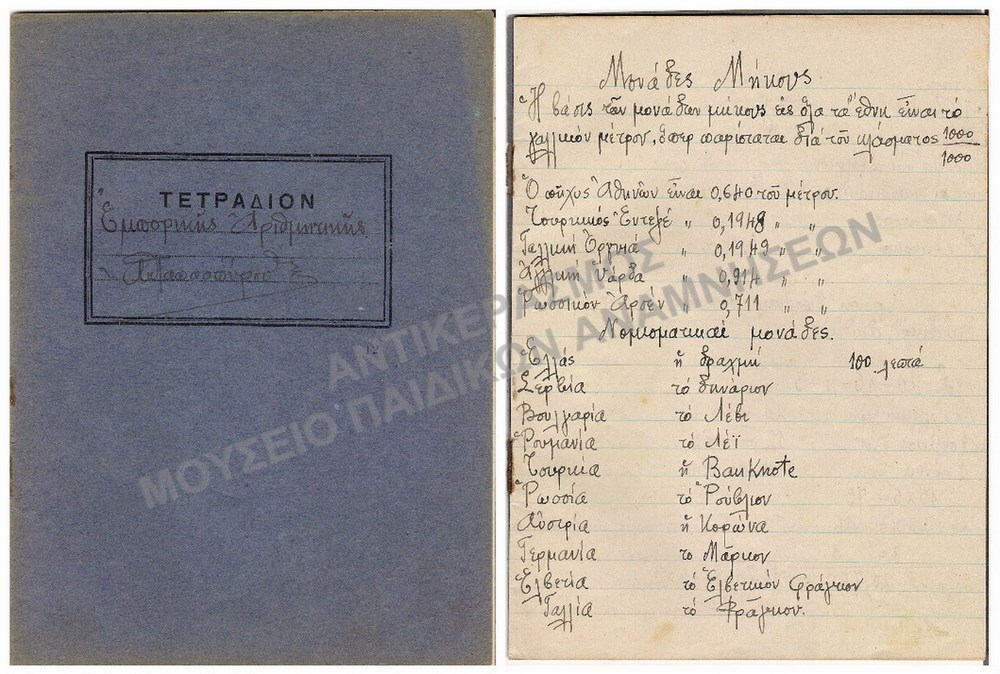 ΤΕΤΡΑΔΙΟΝ
Ἐμπορικῆς Ἀριθμητικῆς
12
Μονάδες Μήκους
Ἡ βάσις τῶν μονάδων μήκους εἰς ὅλα τὰ ἔθνη εἶναι τό
γαλλικόν μέτρον, ὅπερ παρίσταται διά τοῦ κλάσματος 1000/1000
Ὁ πῆχυς Ἀθηνῶν εἶναι 0,640 τοῦ μέτρου.
Τουρκικός Ἐντεζέ " 0,1948 " "
Γαλλική Ὀργυιά " 0,1949 " "
Ἀγγλική Ὑάρδα " 0,914 " "
Ρωσσικόν Ἀρσέν " 0,711 " "
Νομισματικαί μονάδες.
Ἑλλάς ἡ δραχμή 100 λεπτά
Σερβία τό δηνάριον
Βουλγαρία τό Λέβι
Ρουμανία τό Λέϊ
Τουρκία ἡ Banknote
Ρωσσία τό Ρούβλιον
Αὐστρία ἡ Κορώνα
Γερμανία το Μάρκον
Ἑλβετία τό Ἑλβετικόν φράγκον
Γαλλία τό Φράγκον.
ΑΝΤΙΚΕΡΑΣΜΟΣ
ΜΟΥΣΕΙΟ ΠΑΙΔΙΚΩΝ ΑΝΑΜΝΗΣΕΩΝ